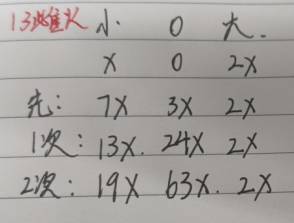 小. 0 大.
x 0 2x
先: 7x 3x 2x
1次: 13x. 24x 2x
2次: 19x 63x. 2x